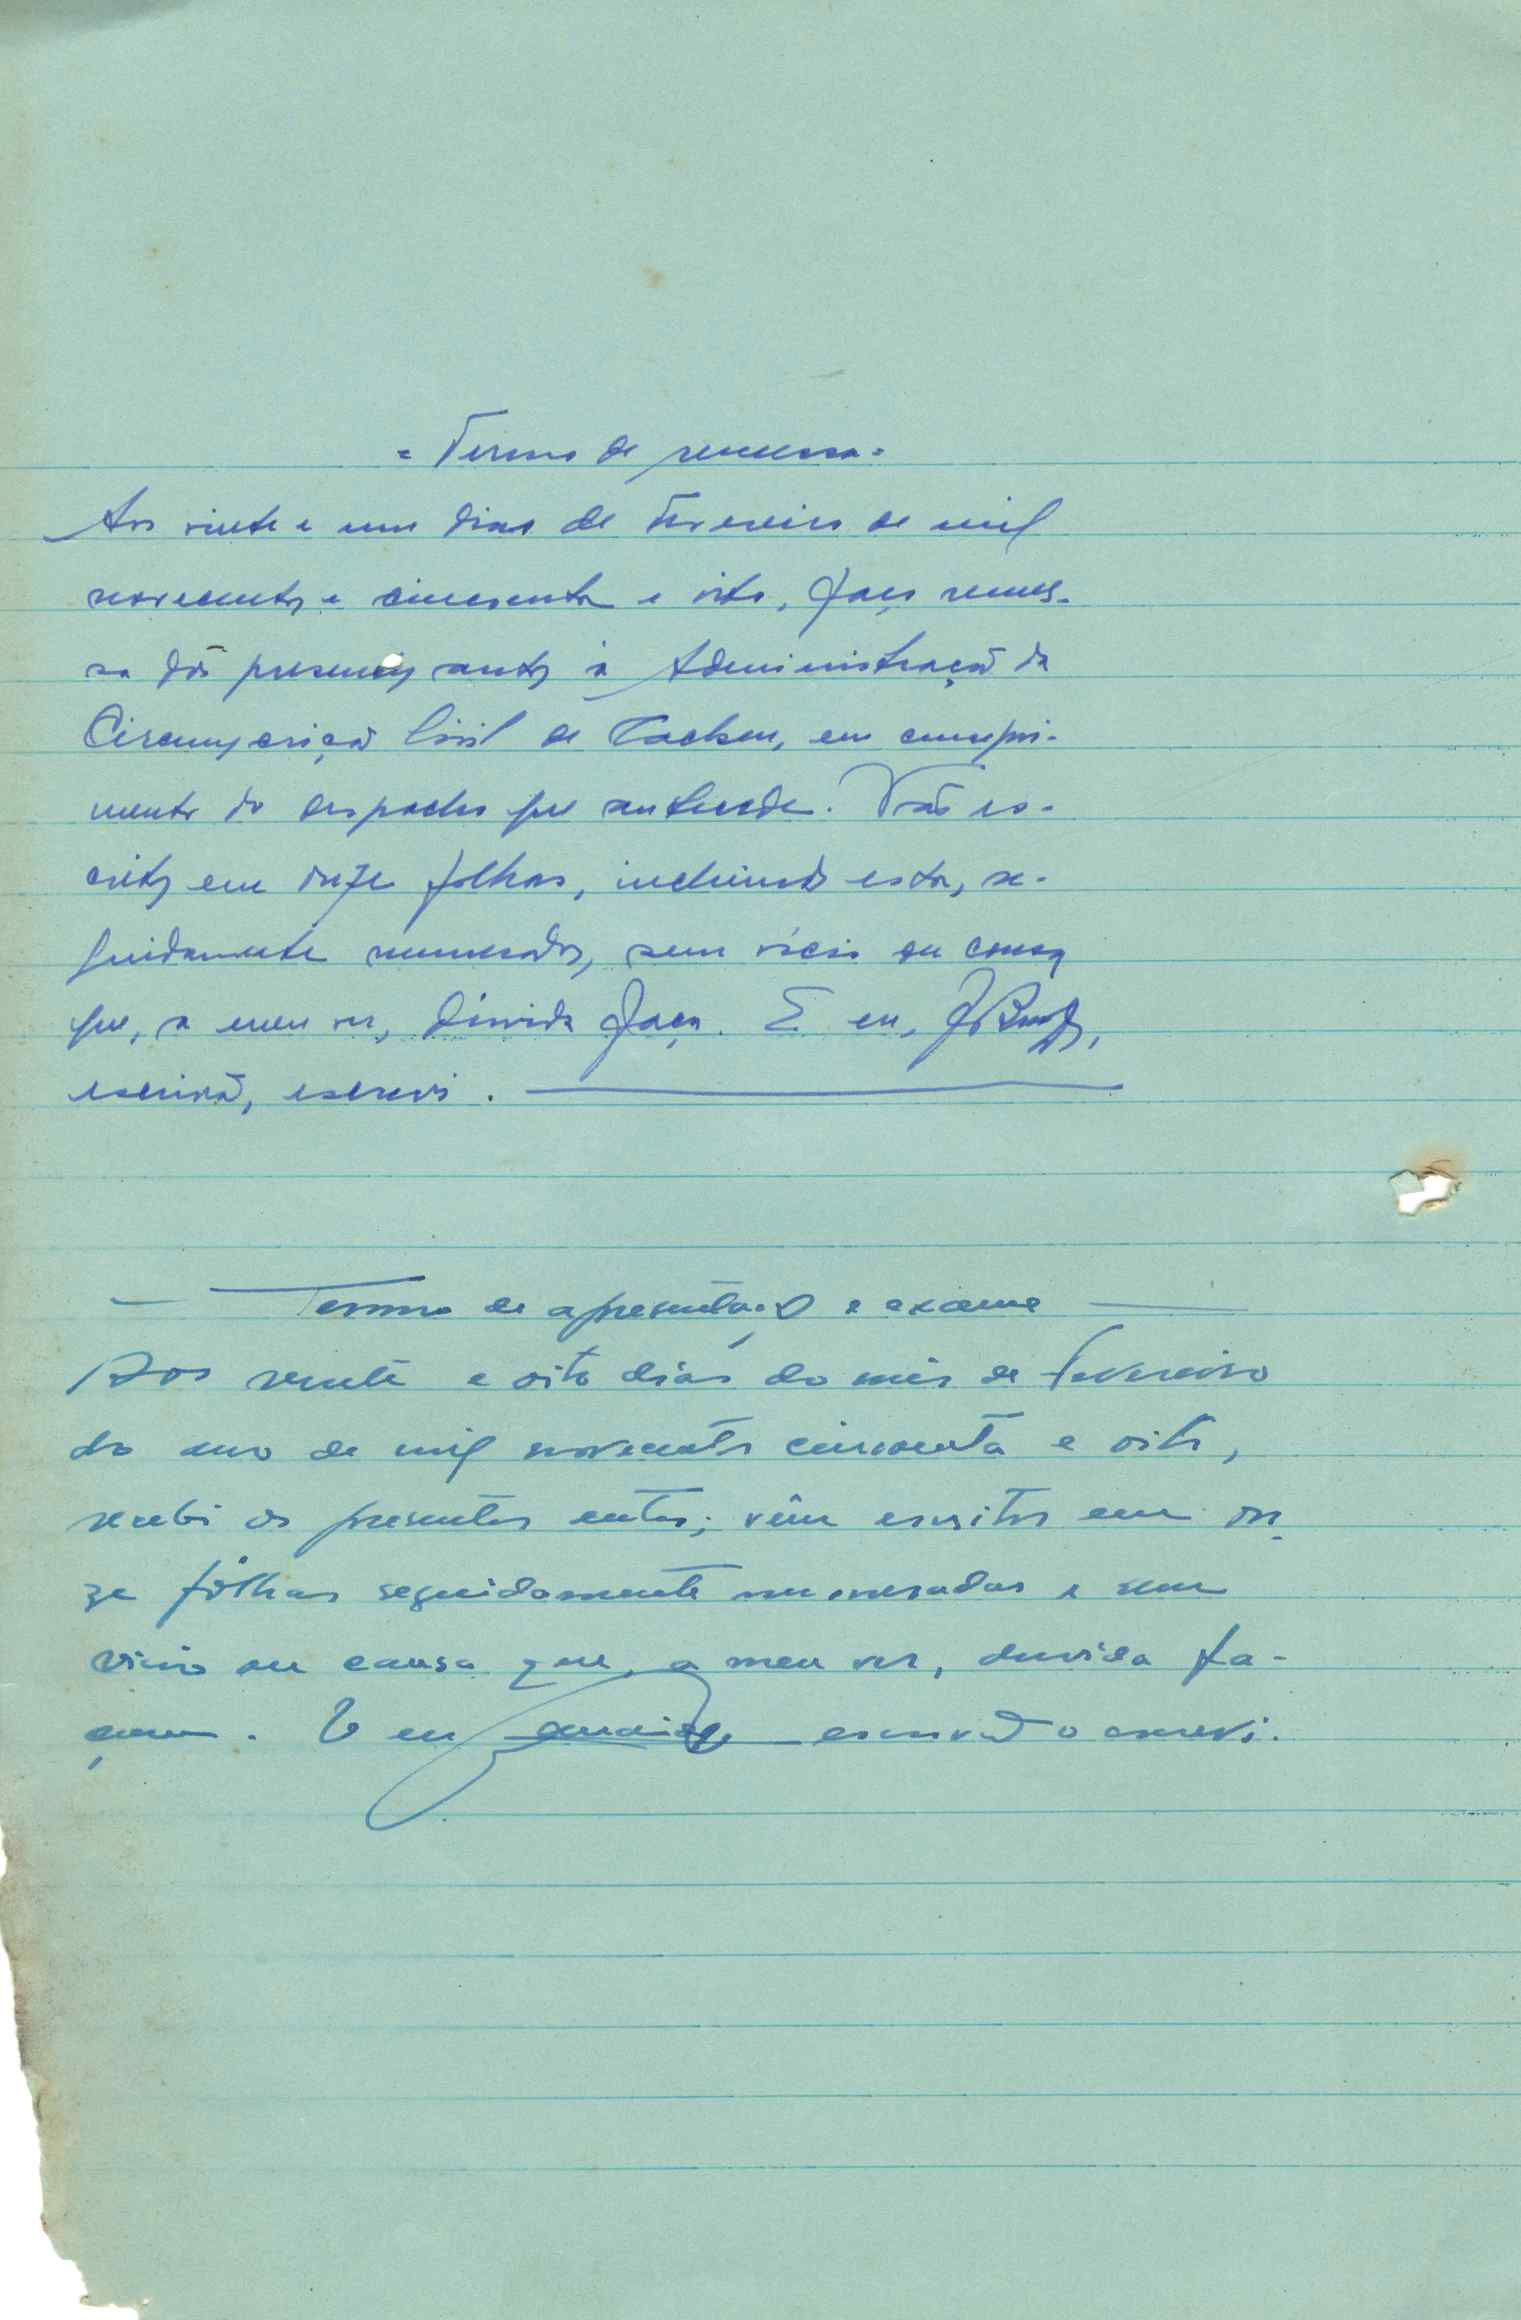 = Termo de remessa =
Aos vinte e um dias de Fevereiro de mil
novecentos e cincoenta e oito, faço remes-
sa dos presentes autos à Administração da
Circunscrição Civil de Cacheu, em cumpri-
mento do despacho que antecede. Vão es-
critos em onze folhas, incluindo esta, se-
guidamente numeradas, sem vício ou cousa
que, a meu ver, dúvida faça. E eu,
escrivão, escrevi.
— Termo de apresentação e exame —
Aos vinte e oito dias do mês de fevereiro
do ano de mil novecentos cincoenta e oito,
recebi os presentes autos; vêm escritos em on-
ze fôlhas seguidamente numeradas e sem
vicio ou causa que, a meu ver, duvida fa-
çam. E eu escrivão o escrevi.